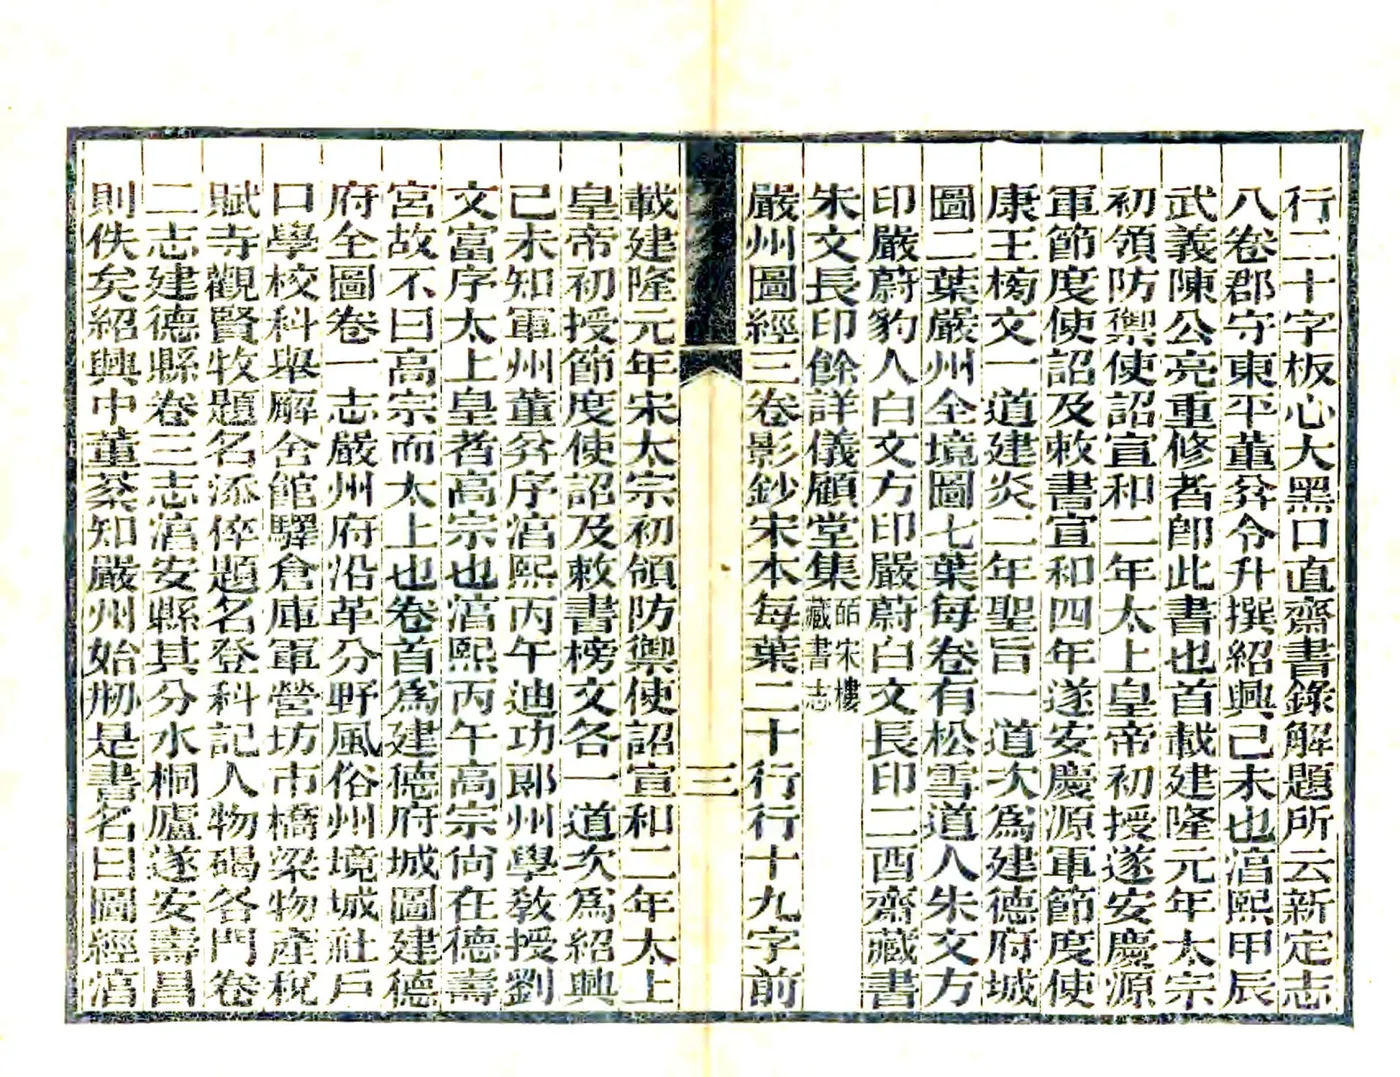 行二十字板心大黑口直齋書錄解題所云新定志
八卷郡守東平董弅令升撰紹興己未也湻熙甲辰
武義陳公亮重修者卽此書也首載建隆元年太宗
初領防禦使詔宣和二年太上皇帝初授遂安慶源
軍節度使詔及敕書宣和四年遂安慶源軍節度使
康王榜文一道建炎二年聖旨一道次爲建德府城
圖二葉嚴州全境圖七葉每卷有松雪道人朱文方
印嚴蔚豹人白文方印嚴蔚白文長印二酉齋藏書
朱文長印餘詳儀顧堂集皕宋樓藏書志
嚴州圖經三卷影鈔宋本每葉二十行行十九字前
三
載建隆元年宋太宗初領防禦使詔宣和二年太上
皇帝初授節度使詔及敕書榜文各一道次爲紹興
己未知軍州董弅序湻熙丙午迪功郞州學敎授劉
文富序太上皇者高宗也湻熙丙午高宗尙在德壽
宮故不曰高宗而太上也卷首爲建德府城圖建德
府全圖卷一志嚴州府沿革分野風俗州境城社戶
口學校科舉廨舍館驛倉庫軍營坊市橋梁物產稅
賦寺觀賢牧題名添倅題名登科記人物碣各門卷
二志建德縣卷三志湻安縣其分水桐廬遂安壽昌
則佚矣紹興中董棻知嚴州始刱是書名曰圖經湻